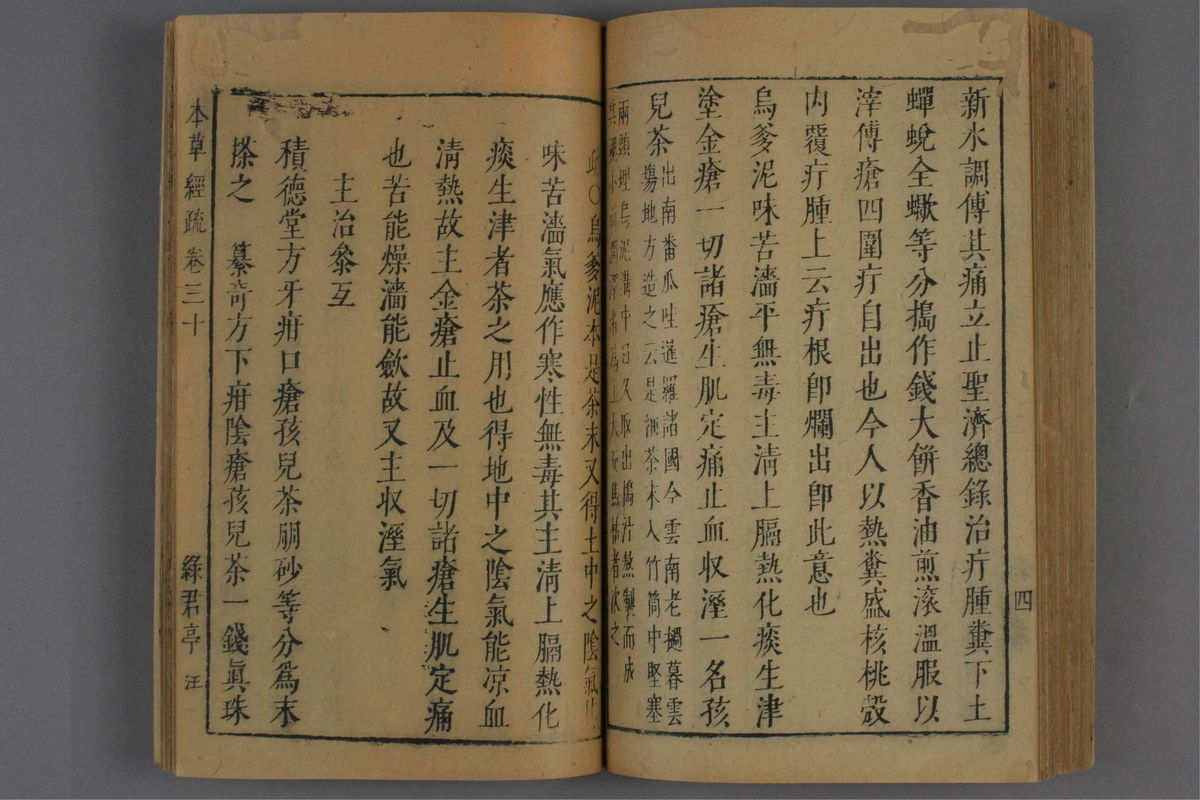 四
新水調傅其痛立止聖濟總錄治疔腫糞下土
蟬蛻全蠍等分搗作錢大餅香油煎滾溫服以
滓傅瘡四圍疔自出也今人以熱糞盛核桃殼
內覆疔腫上云疔根卽爛出卽此意也
烏爹泥味苦濇平無毒主淸上膈熱化痰生津
塗金瘡一切諸瘡生肌定痛止血收溼一名孩
兒茶
出南番爪哇暹羅諸國今雲南老撾暮雲
塲地方造之云是細茶末入竹筒中堅塞
兩頭埋烏泥溝中日久取出搗汁熬製而成
其塊小 潤澤者爲上大而焦枯者次之
疏○烏爹泥本是茶末又得土中之陰氣
味苦濇氣應作寒性無毒其主淸上膈熱化
痰生津者茶之用也得地中之陰氣能凉血
淸熱故主金瘡止血及一切諸瘡生肌定痛
也苦能燥濇能歛故又主收溼氣
主治叅互
積德堂方牙疳口瘡孩兒茶硼砂等分爲末
搽之 纂奇方下疳陰瘡孩兒茶一錢眞珠
本草經疏 卷三十 綠君亭 汪